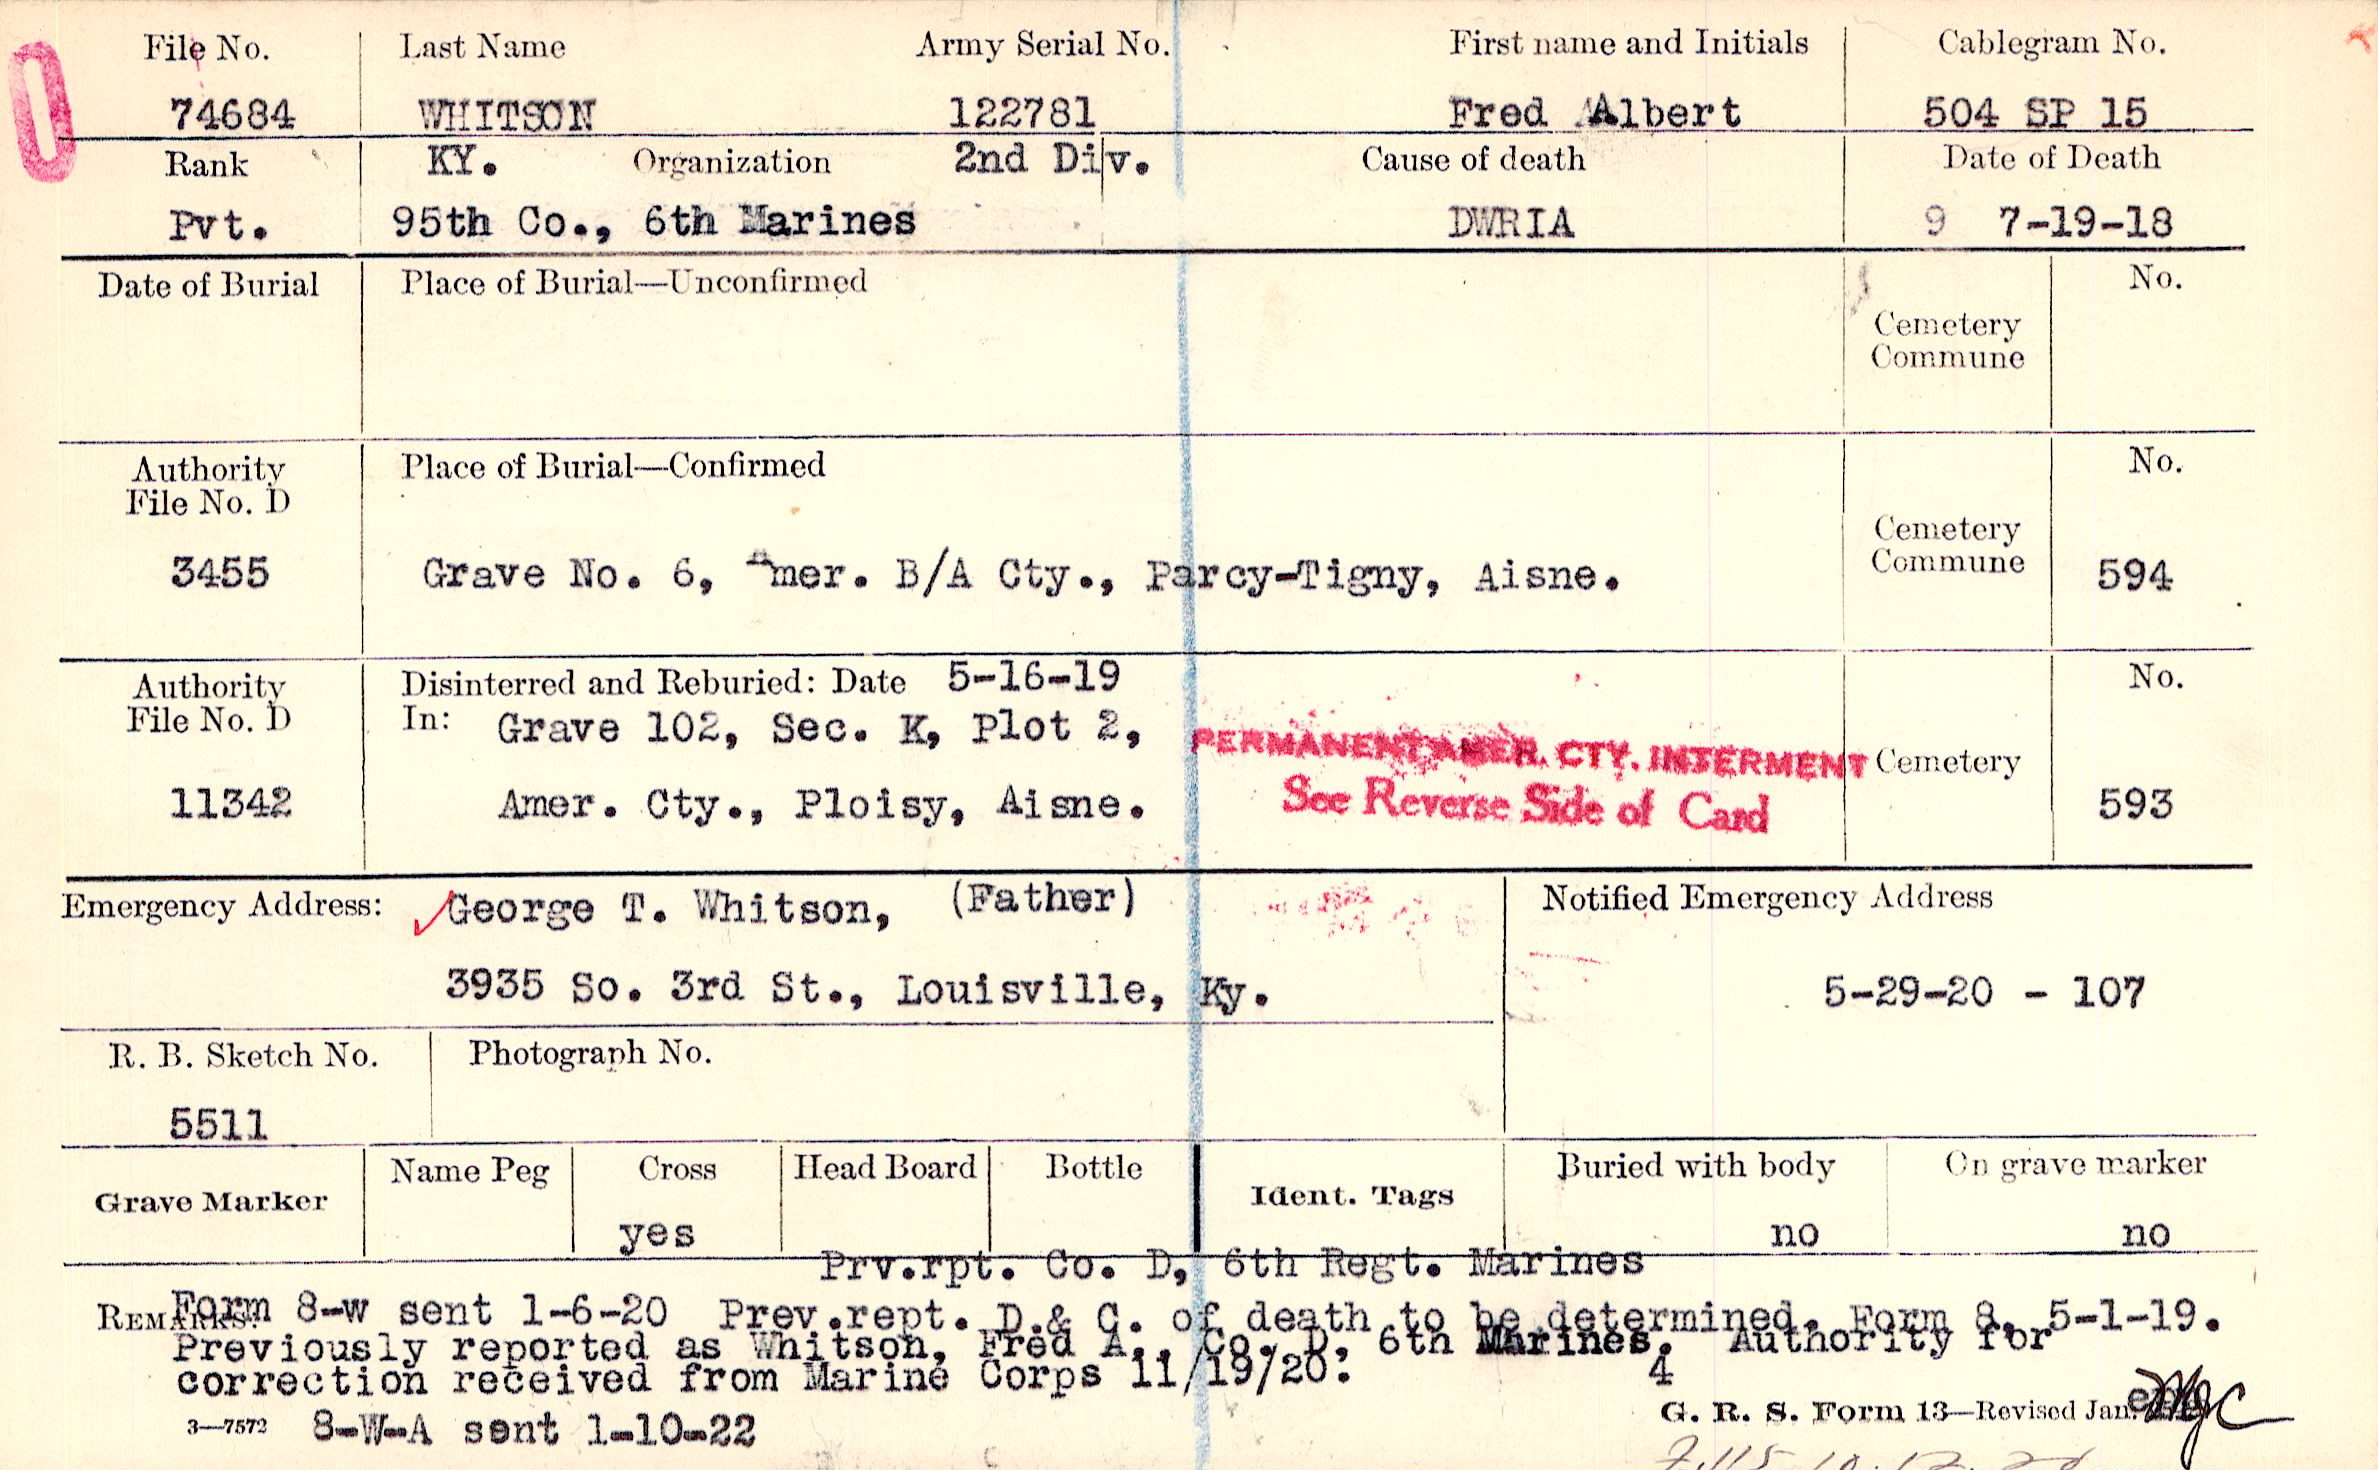 File No. Last Name Army Serial No. First name and Initials Cablegram No.
74684 WHITSON 122781 Fred Albert 504 SP 15
Rank KY. Organization 2nd Div. Cause of death Date of Death
Pvt. 95th Co., 6th Marines DWRIA 9 7-19-18
Date of Burial Place of Burial—Unconfirmed No.
Cemetery
Commune
Authority Place of Burial—Confirmed No.
File No. D
Cemetery
Commune
3455 Grave No. 6, Amer. B/A Cty., Parcy-Tigny, Aisne. 594
Authority Disinterred and Reburied: Date 5-16-19 No.
File No. D In: Grave 102, Sec. K, Plot 2,
PERMANENT AMER. CTY. INTERMENT Cemetery
11342 Amer. Cty., Ploisy, Aisne. See Reverse Side of Card 593
Emergency Address: George T. Whitson, (Father) Notified Emergency Address
3935 So. 3rd St., Louisville, Ky. 5-29-20 - 107
R. B. Sketch No. Photograph No.
5511
Grave Marker Name Peg Cross Head Board Bottle Ident. Tags Buried with body On grave marker
yes no no
Prv.rpt. Co. D, 6th Regt. Marines
REMARKS: Form 8-w sent 1-6-20 Prev.rept. D.& C. of death to be determined. Form 8, 5-1-19.
Previously reported as Whitson, Fred A., Co. D, 6th Marines. Authority for
correction received from Marine Corps 11/19/20. 4
3—7572 8-W-A sent 1-10-22 G. R. S. Form 13—Revised Jan.